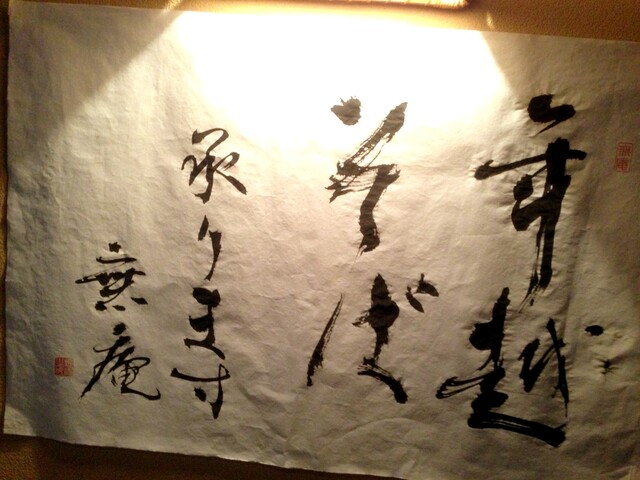 年越
そば
承ります
無庵